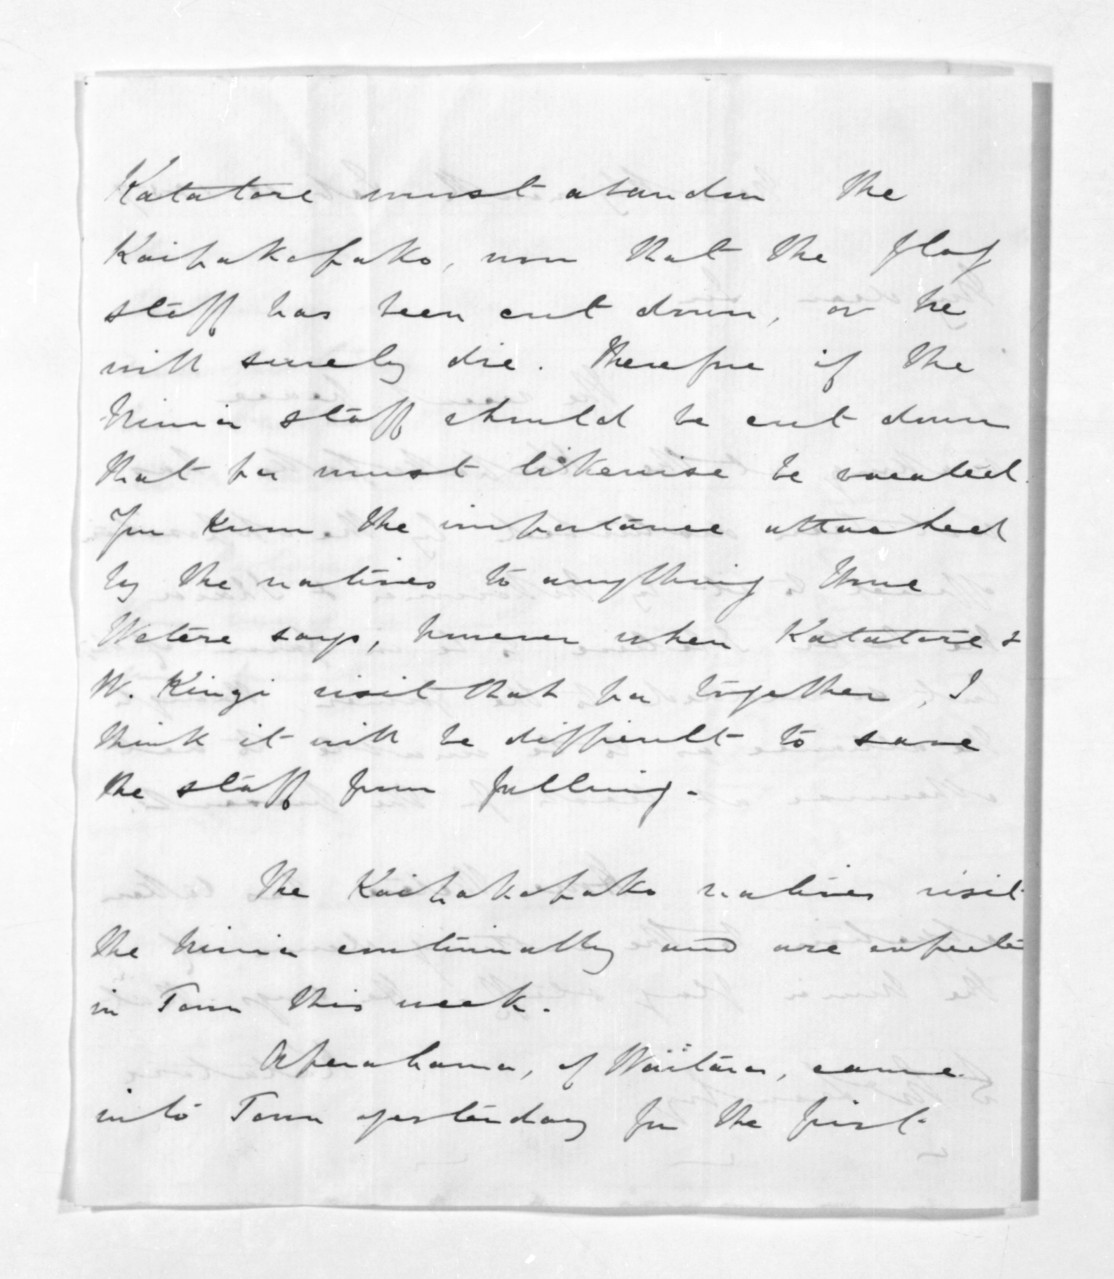 Katatore must abandon the
Kaipakopako, now that the flag
staff has been cut down, or he
will surely die. Therefore if the
Ninia staff should be cut down
that pa must likewise be vacated.
You know the importance attached
by the natives to anything
Watere says, however when Katatore &
W. Kingi visit that pa together, I
think it will be difficult to save
the staff from falling.
The Kaipakopako natives visit
the Ninia continually and are
in Town this week.
Aperahama, of Waitara, came
into Town yesterday for the first